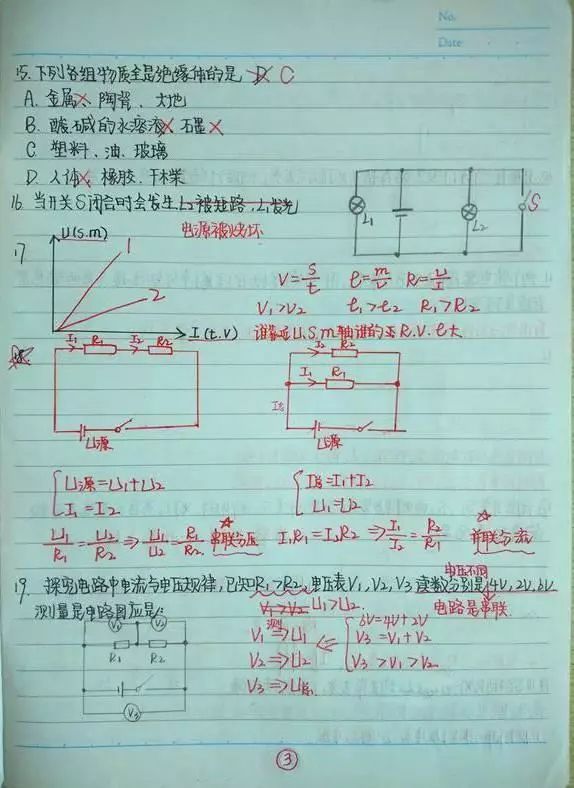 No.
Date
15. 下列各组物质全是绝缘体的是 D C
A. 金属、陶瓷、大地
B. 酸碱的水溶液、石墨
C. 塑料、油、玻璃
D. 人体、橡胶、干木柴
16. 当开关S闭合时会发生L₂被短路,L₁发光
电源被烧坏
L₁ L₂ S
17
U(s.m)
1
2
I(t.v)
V=S/t ρ=m/V R=U/I
V₁>V₂ ρ₁>ρ₂ R₁>R₂
谁靠近U.S.m轴谁的 R.V.ρ大
I₁ R₁ I₂ R₂
U源
I₂ R₂
I₁ R₁
I总
U源
U源=U₁+U₂
I₁=I₂
I总=I₁+I₂
U₁=U₂
U₁/R₁=U₂/R₂⇒U₁/U₂=R₁/R₂ 串联分压
I₁R₁=I₂R₂⇒I₁/I₂=R₂/R₁ 并联分流
电压不同
19. 探究电路中电流与电压规律,已知R₁>R₂,电压表V₁,V₂,V₃读数分别是4V,2V,6V
测量是电路图应是
V₁>V₂ U₁>U₂ 电路是串联
V₁ V₂
R₁ R₂
V₃
测
V₁⇒U₁
V₂⇒U₂
V₃⇒U总
6V=4V+2V
V₃=V₁+V₂
V₃>V₁>V₂
③